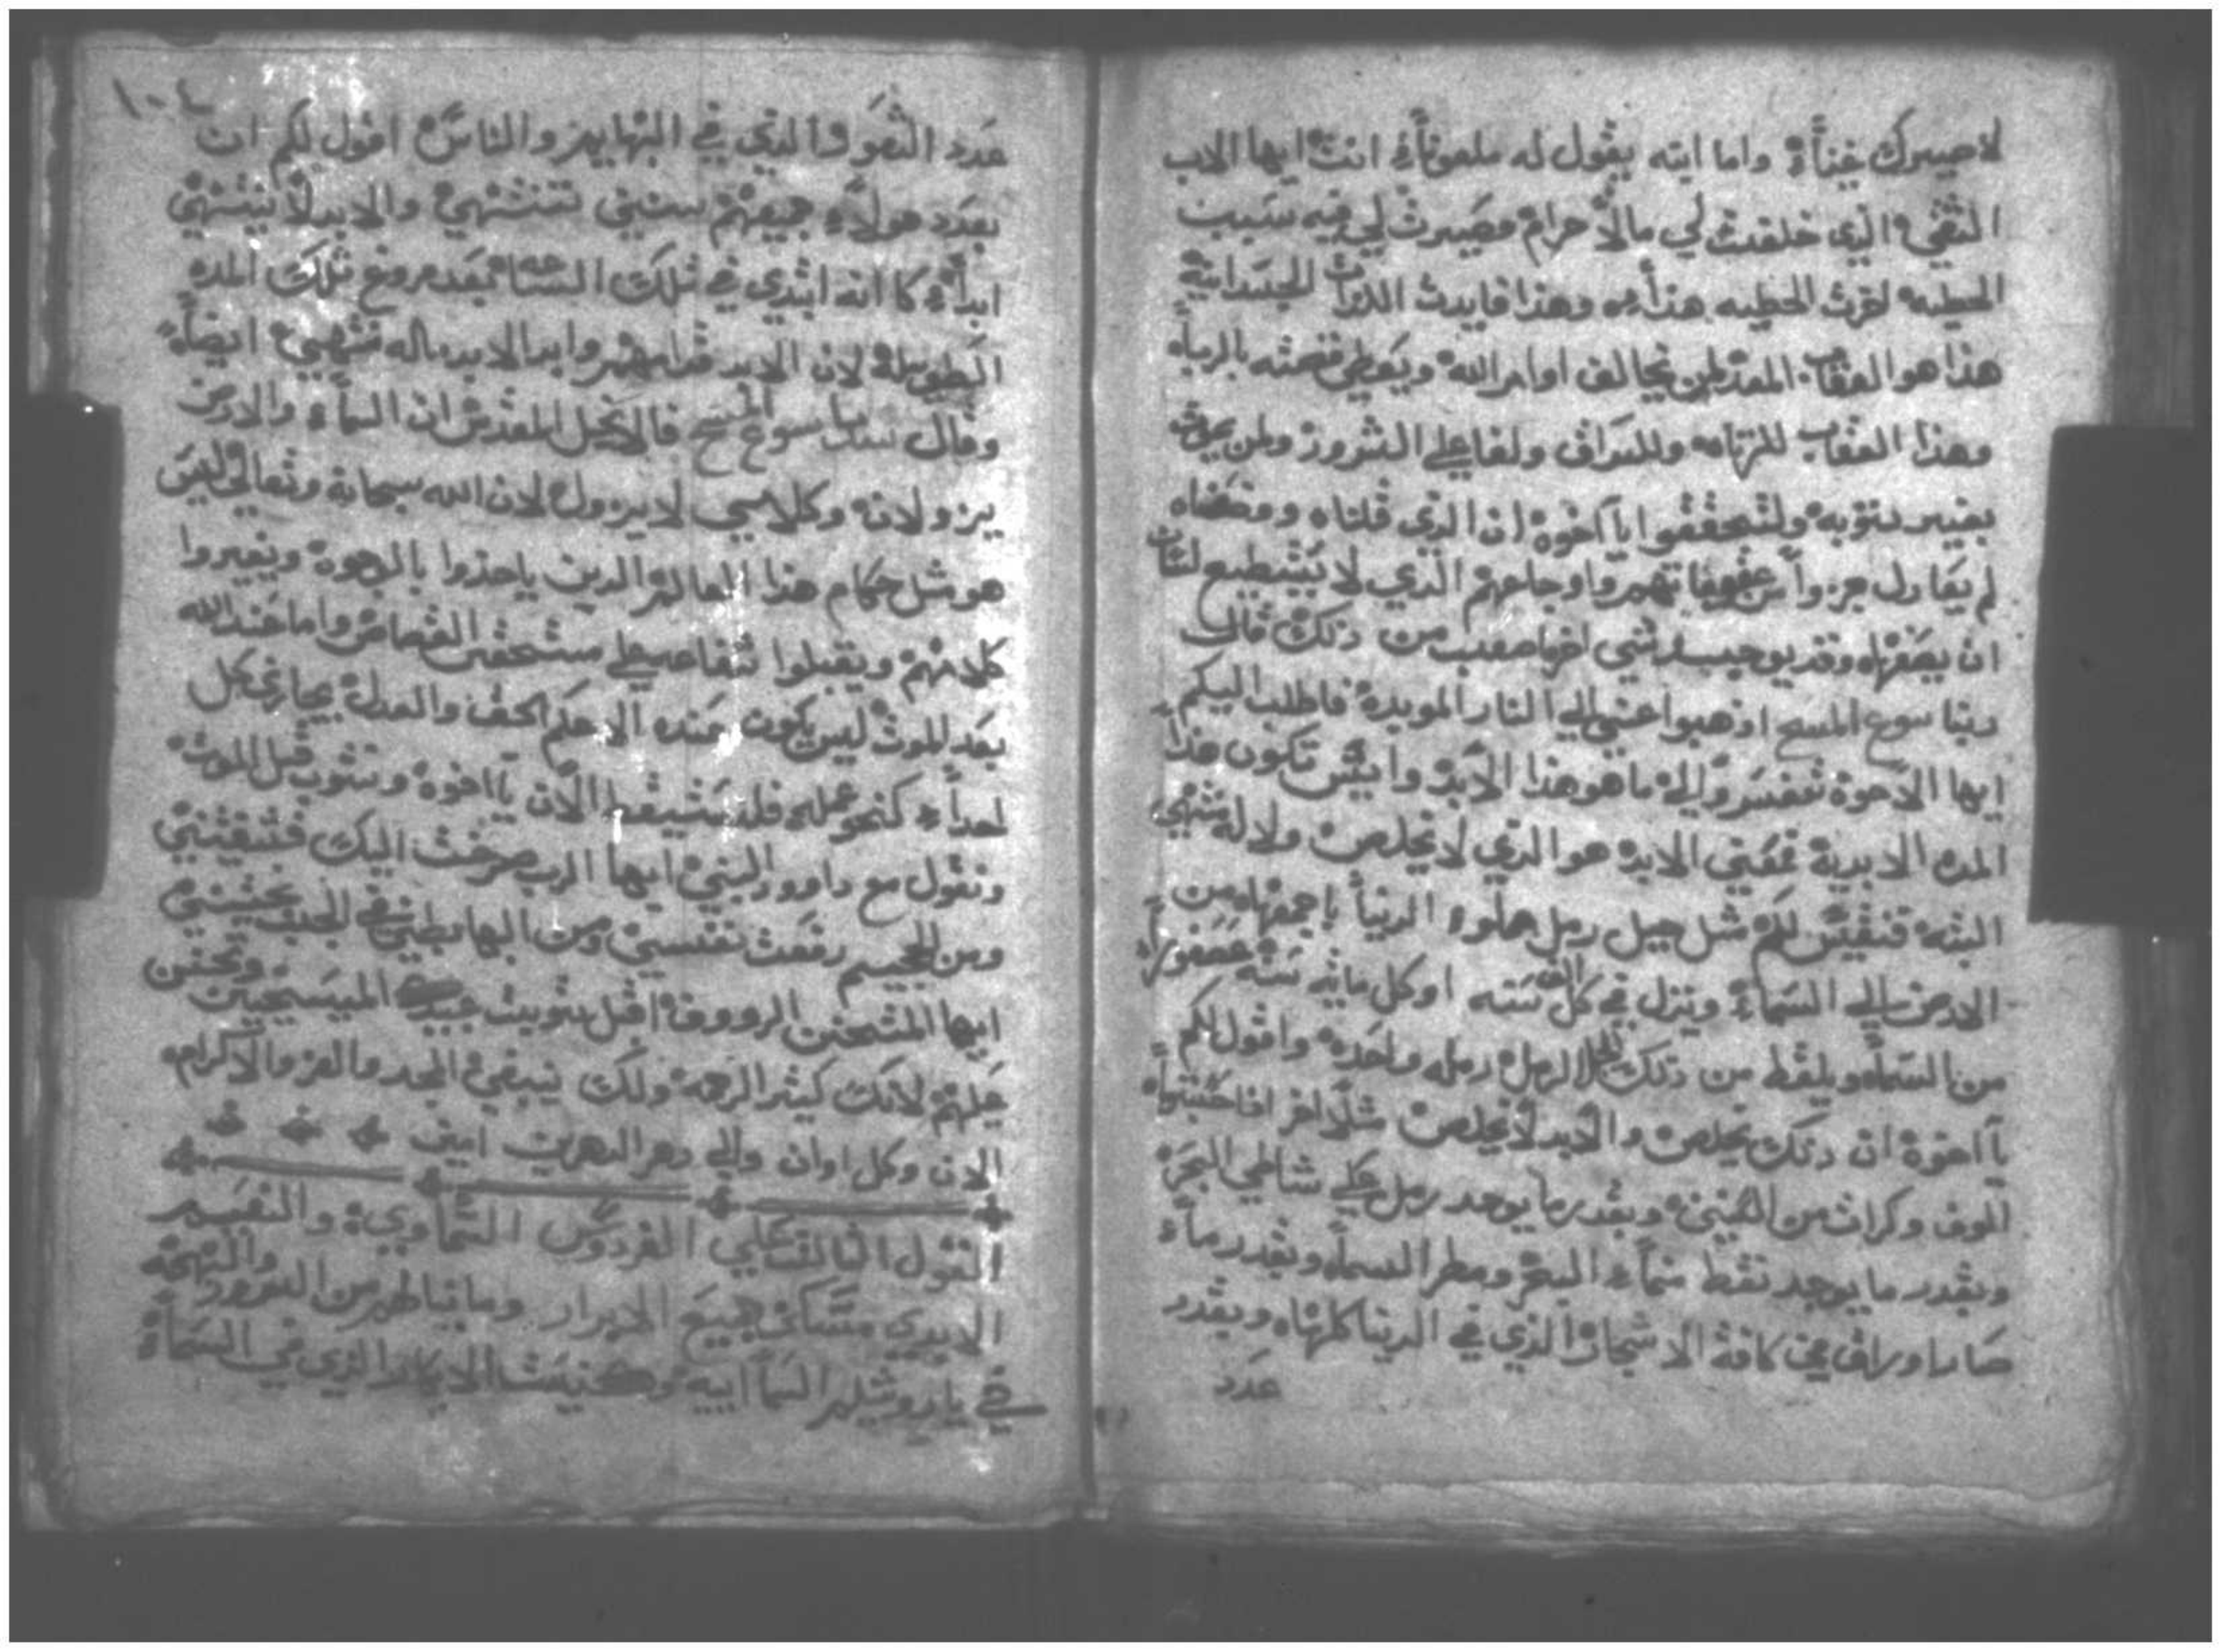 لاصيرك غناءً واما ابنه يقول له ملعوناً انت ايها الاب
الشقي الذي خلفت لي مالاً حرام وصيرت لي فيه سبب
الخطيه هذا هو وهذا فايدت اللذات الجسدانية
هذا هو العقاب المعد لمن يخالف اوامر الله ويعطي فضته بالرباء
وهذا العقاب للزناه وللسراق ولفاعلي الشرور ولمن يموت
بغير توبه ولتتحققوا يا اخوة ان الذي قلناه ووصفناه
لم يعادل جزواً من عقوباتهم واوجاعهم الذي لا يستطيع لسان
ان يصفها وقد يوجد شي اخر اصعب من ذلك قال
ربنا يسوع المسيح اذهبوا عني الي النار الموبدة فاطلب اليكم
ايها الاخوة تفسروا لي ما هو هذا الابد وايش تكون هذا
المده الابدية فمعني الابد هو الذي لا يخلص ولا له منتهي
البته فنقيس لكم مثل جبل رمل مملوء الدنيا باجمعها من
الارض الي السماء وينزل في كل الف سنه او كل ماية سنه عصفوراً
من السماء ويلتقط من ذلك الرمل رمله واحده واقول لكم
يا اخوة ان ذلك يخلص والابد لا يخلص مثلاً اخر اذا حسبتها
الوف وكرات من السنين وبقدر ما يوجد رمل علي شاطي البحر
وبقدر ما يوجد نقط ماء البحر ومطر السماء وبقدر ما
اوراق في كافة الاشجار الذي في الدنيا كلها وبقدر
عدد
١٠٤
عدد الشعور الذي في البهايم والناس اقول لكم ان
بعدد هولاء جميعهم سنين تنتهي والابد لا ينتهي
ابداً كانه ابتدي في تلك الساعة بعد فروغ تلك المده
الطويله لان الابد وابد الابد ماله منتهي ايضاً
وقال سيدنا يسوع المسيح في الانجيل المقدس ان السماء والارض
يزولان وكلامي لا يزول لان الله سبحانه وتعالي ليس
هو مثل حكام هذا العالم الذين ياخذوا بالوجوه ويغيروا
كلامهم ويقبلوا شفاعه علي مستحقي القصاص واما عند الله
بعد الموت ليس يكون عنده الا حكم الحق والعدل يجازي كل
احداً كنحو عمله فلنستيقظ الان يا اخوة ونتوب قبل الموت
ونقول مع داوود النبي ايها الرب صرخت اليك فشفيتني
ومن الجحيم رفعت نفسي ومن الهابطين في الجب نجيتني
ايها المتحنن الرووف اقبل توبت عبيدك المسيحيين وتحنن
عليهم لانك كثير الرحمه ولك ينبغي المجد والعز والاكرام
الان وكل اوان والي دهر الداهرين امين
القول الثالث علي الفردوس السماوي والنعيم
الابدي مسكن جميع الابرار وما ينالهم من السرور والبهجة
في يارو شليم السماييه وكنيست الابكار الذي في السماء